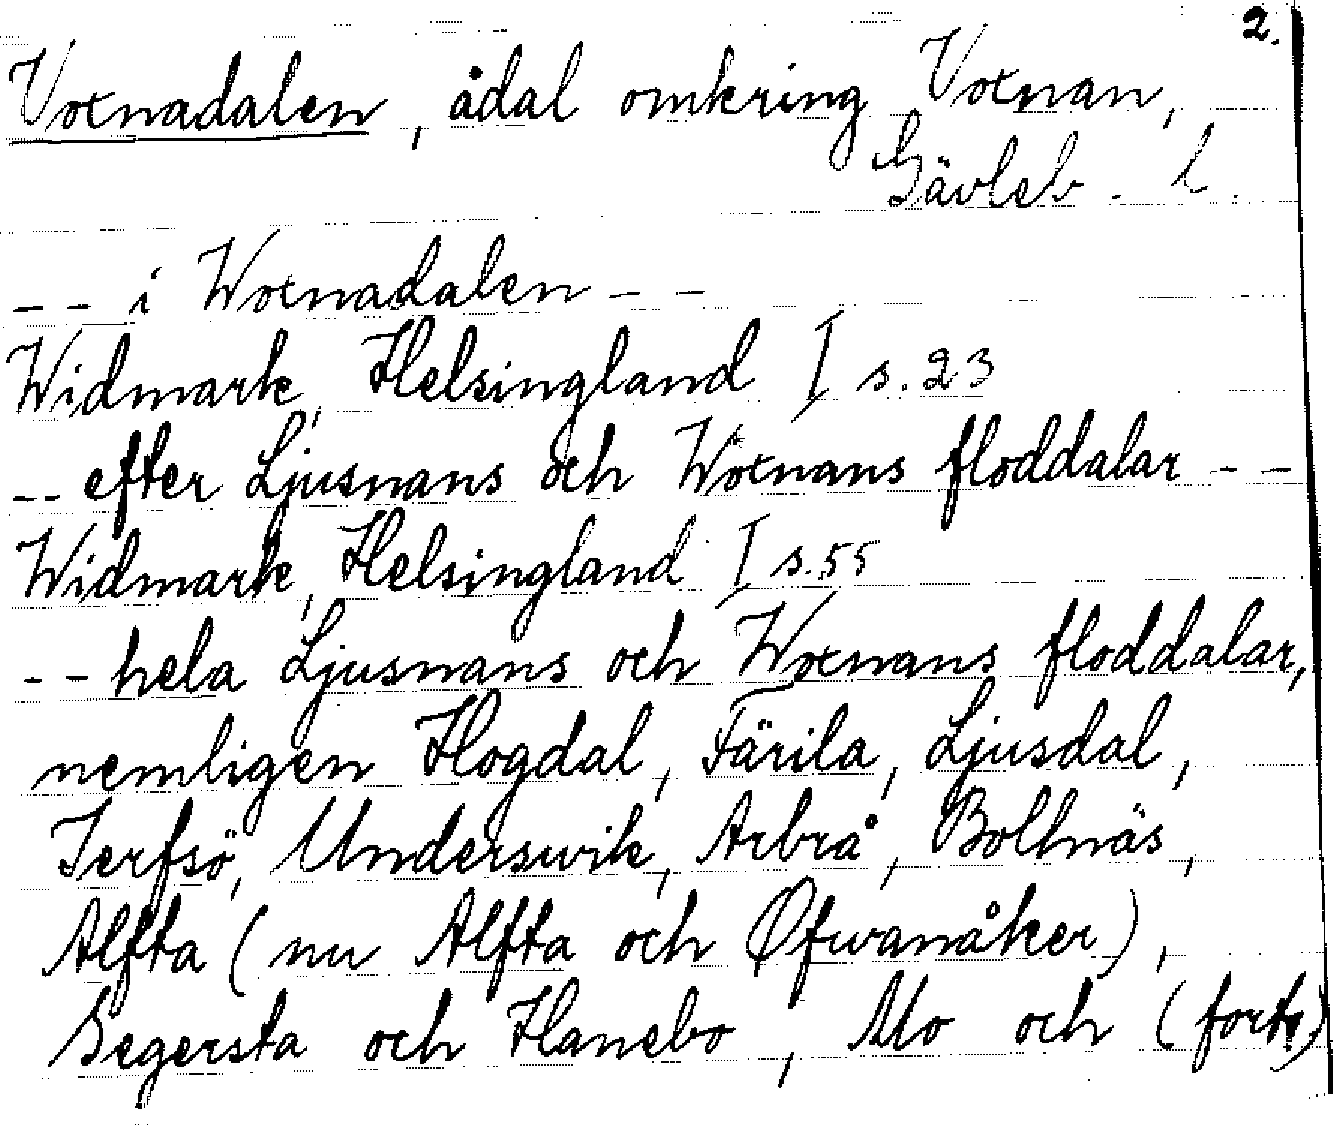 2.
Voxnadalen, ådal omkring Voxnan,
Gävleb. l.
-- i Woxnadalen --
Widmark, Helsingland I s. 23
-- efter Ljusnans och Woxnans floddalar --
Widmark, Helsingland I s. 55
-- hela Ljusnans och Woxnans floddalar,
nemligen Hogdal, Färila, Ljusdal,
Jerfsö, Underswik, Arbrå, Bollnäs,
Alfta (nu Alfta och Øfwanåker),
Segersta och Hanebo, Mo och (forts)